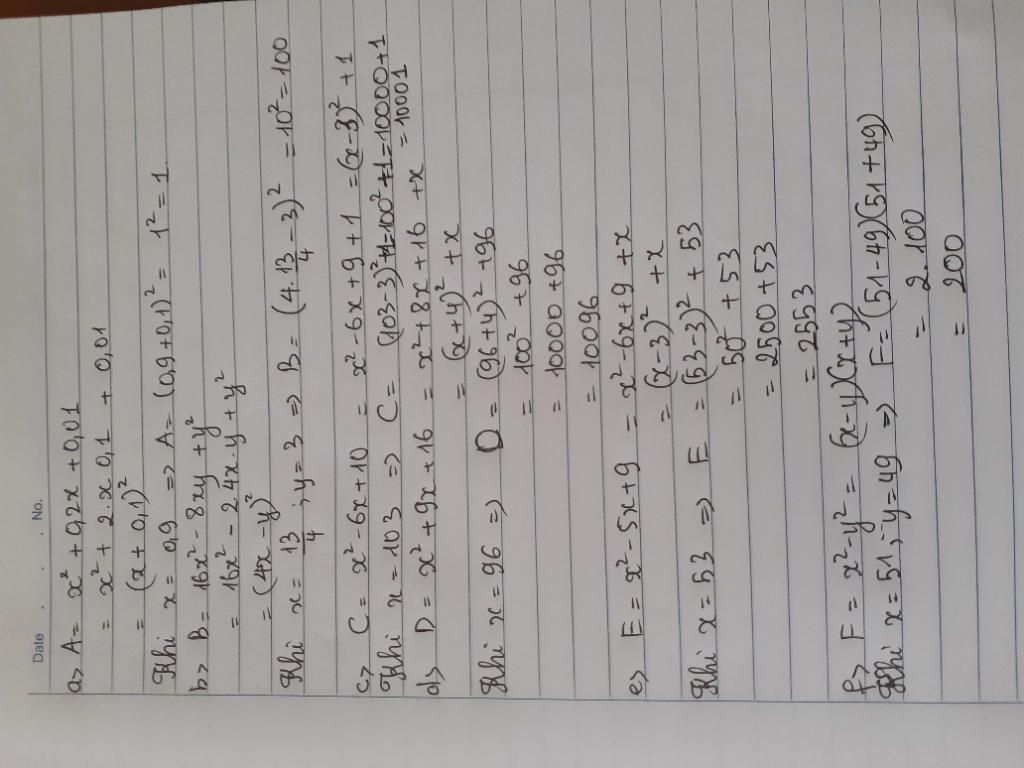 Date . . . No.
a> A = x² + 0,2x + 0,01
= x² + 2.x 0,1 + 0,01
= (x + 0,1)²
Khi x = 0,9 => A = (0,9 + 0,1)² = 1² = 1
b> B = 16x² - 8xy + y²
= 16x² - 2.4x.y + y²
= (4x - y)²
Khi x = 13/4 ; y = 3 => B = (4.13/4 - 3)² = 10² = 100
c> C = x² - 6x + 10 = x² - 6x + 9 + 1 = (x - 3)² + 1
Khi x = 103 => C = (103 - 3)² + 1 = 100² + 1 = 10000 + 1
= 10001
d> D = x² + 9x + 16 = x² + 8x + 16 + x
= (x + 4)² + x
Khi x = 96 => D = (96 + 4)² + 96
= 100² + 96
= 10000 + 96
= 10096
e> E = x² - 5x + 9 = x² - 6x + 9 + x
= (x - 3)² + x
Khi x = 53 => E = (53 - 3)² + 53
= 50² + 53
= 2500 + 53
= 2553
f> F = x² - y² = (x - y)(x + y)
Khi x = 51 ; y = 49 => F = (51 - 49)(51 + 49)
= 2.100
= 200